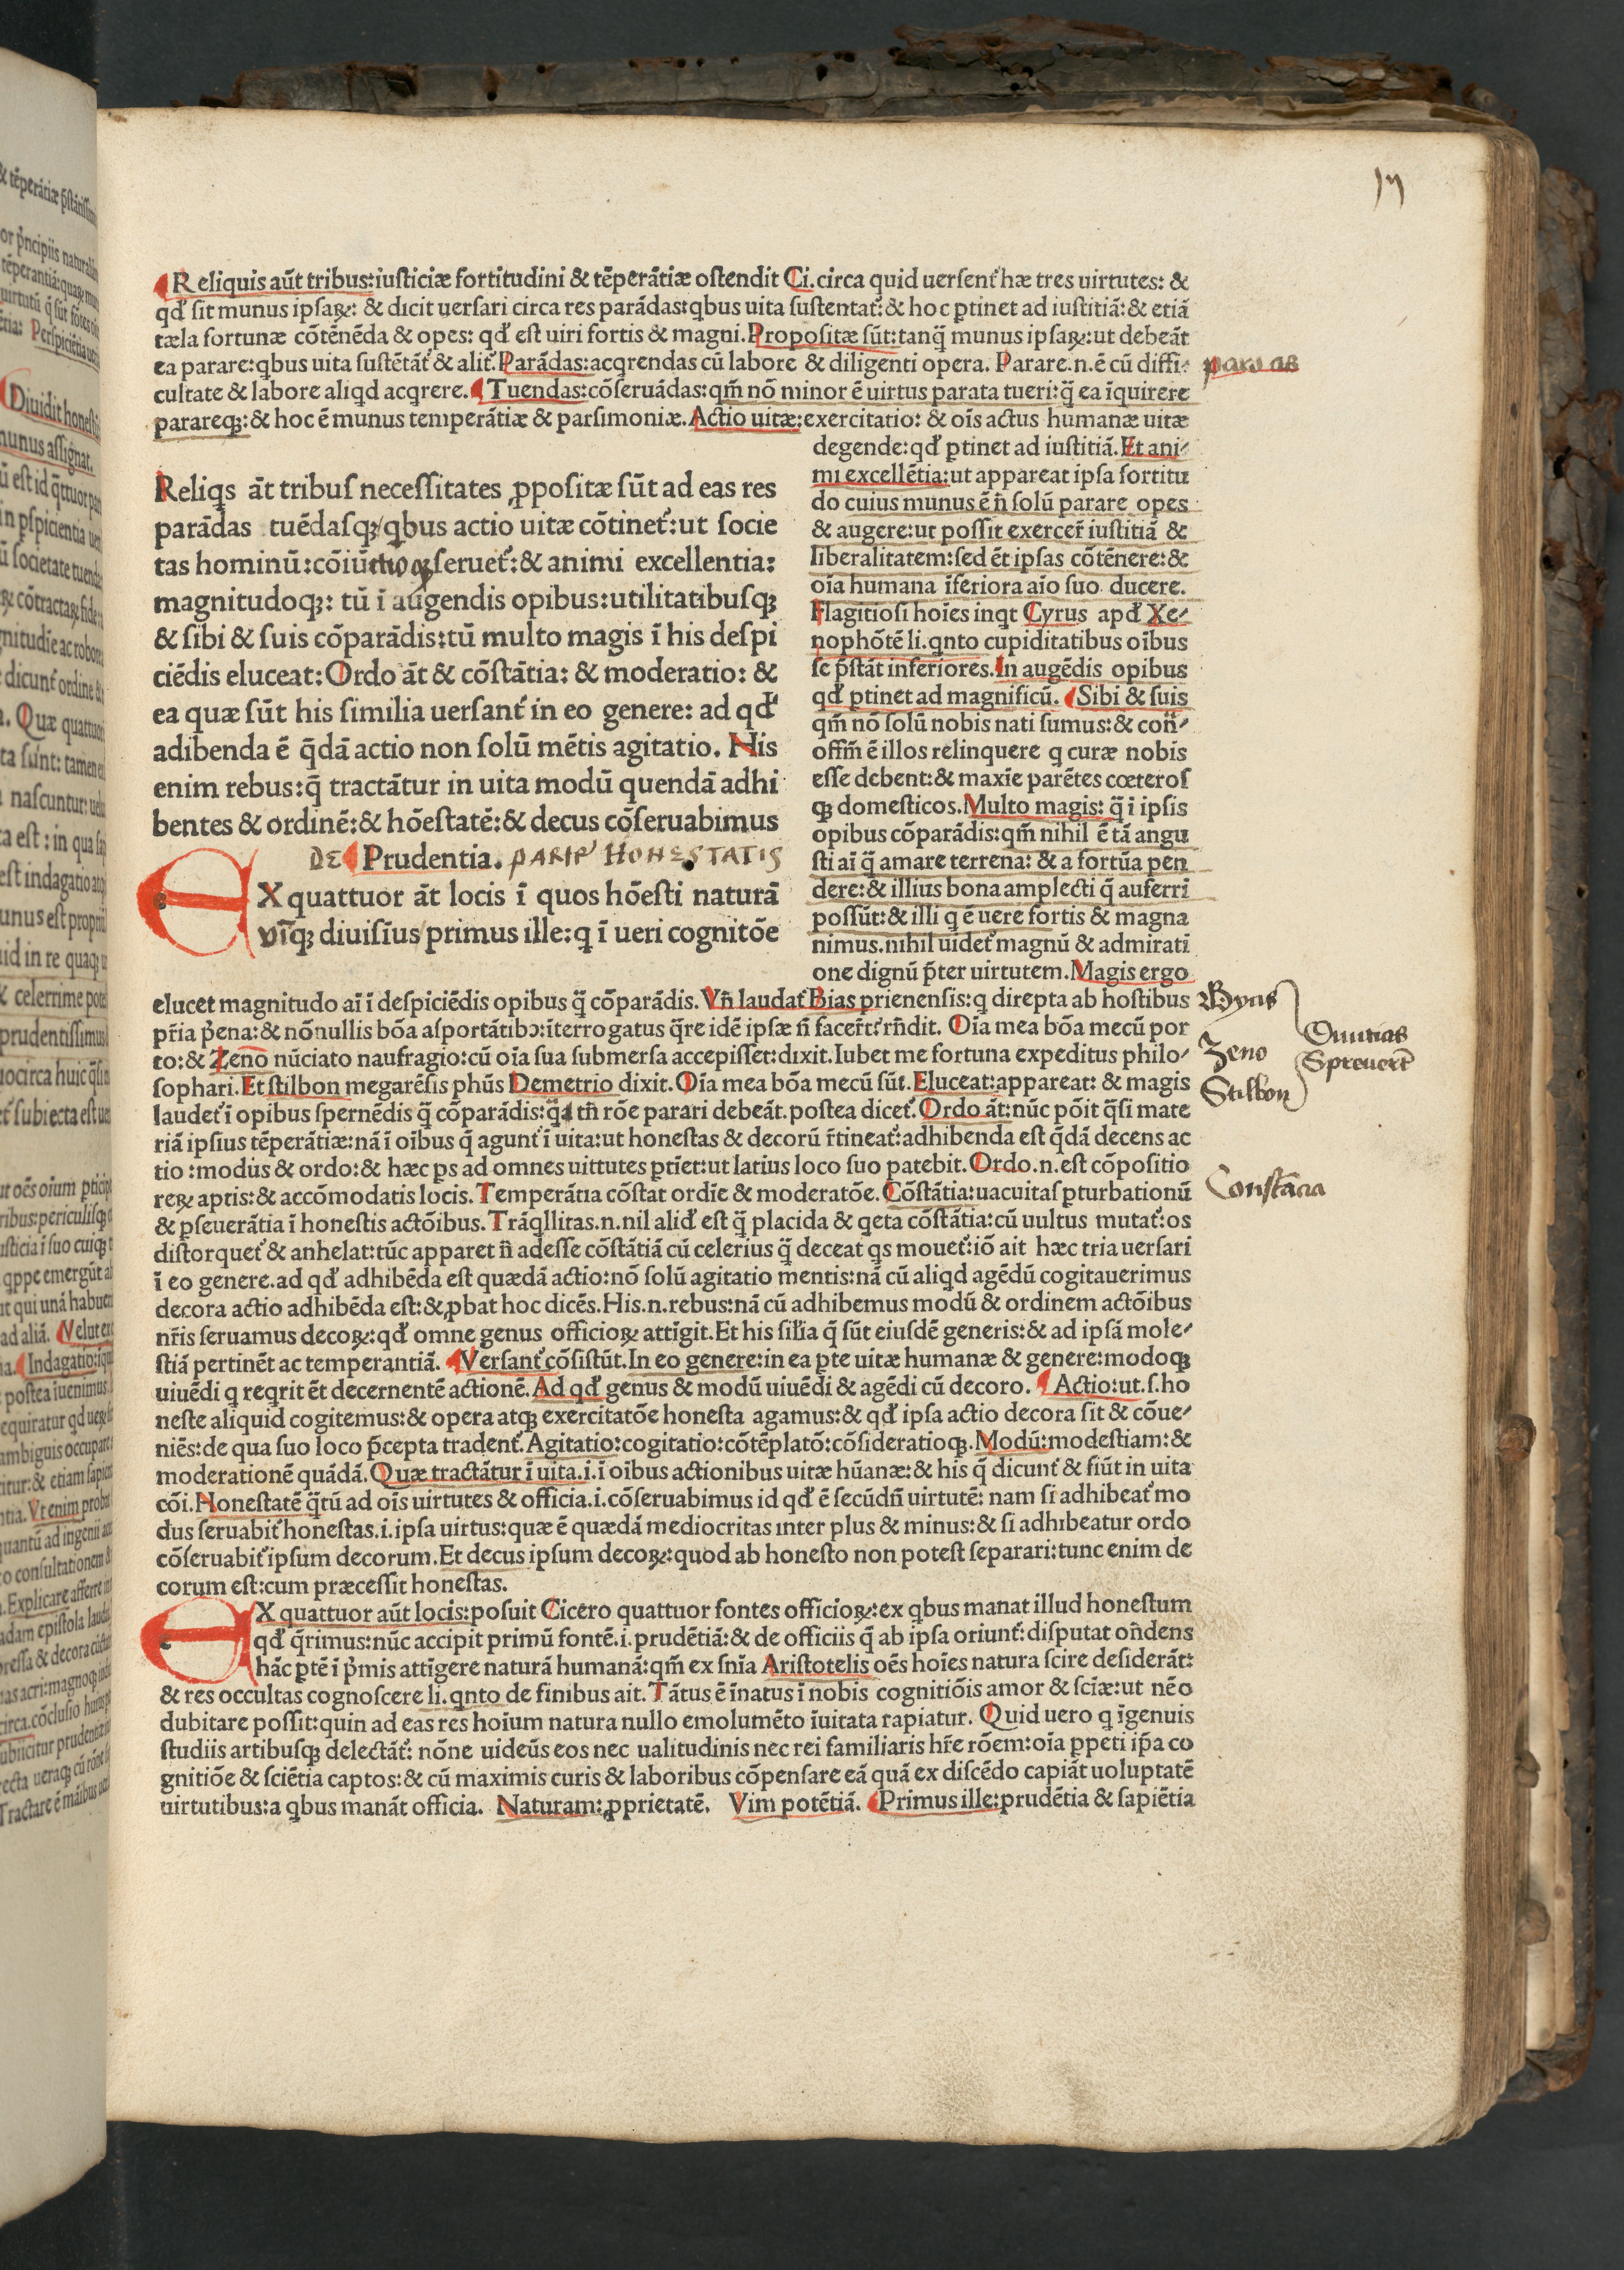 17
Reliquis aũt tribus:iuſticiæ fortitudini & tẽperãtiæ oſtendit Ci.circa quid uerſenť hæ tres uirtutes: &
qđ ſit munus ipſaꝝ: & dicit uerſari circa res parãdas:qbus uita ſuſtentať:& hoc ꝑtinet ad iuſtitiã:& etiã
tæla fortunæ cõtẽnẽda & opes: qđ eſt uiri fortis & magni.Propoſitæ ſũt:tanq̃ munus ipſaꝝ:ut debeãt
ea parare:qbus uita ſuſtẽtãť & aliť.Parãdas:acqrendas cũ labore & diligenti opera. Parare.n.ẽ cũ diffi-
cultate & labore aliqd acqrere. Tuendas:cõſeruãdas:qm̃ nõ minor ẽ uirtus parata tueri:q̃ ea ĩquirere
parareqꝫ:& hoc ẽ munus temperãtiæ & parſimoniæ.Actio uitæ:exercitatio: & oĩs actus humanæ uitæ
degende:qđ ꝑtinet ad iuſtitiã.Et ani-
mi excellẽtia:ut appareat ipſa fortitu
do cuius munus ẽ ñ ſolũ parare opes
& augere:ut poſſit exercer̃ iuſtitiã &
liberalitatem:ſed ẽt ipſas cõtẽnere:&
oĩa humana ĩferiora aĩo ſuo ducere.
Flagitioſi hoĩes inqt Cyrus apđ Xe-
nophõtẽ li.qnto cupiditatibus oĩbus
ſe p̃ſtãt inferiores.In augẽdis opibus
qđ ꝑtinet ad magnificũ. Sibi & ſuis
qm̃ nõ ſolũ nobis nati ſumus:& coñ-
offm̃ ẽ illos relinquere q curæ nobis
eſſe debent:& maxĩe parẽtes cœteroſ
qꝫ domeſticos.Multo magis: q̃ ĩ ipſis
opibus cõparãdis:qm̃ nihil ẽ tã angu
ſti aĩ q̃ amare terrena: & a fortũa pen
dere:& illius bona amplecti q̃ auferri
poſſũt:& illi q ẽ uere fortis & magna
nimus.nihil uideť magnũ & admirati
one dignũ p̃ter uirtutem.Magis ergo
Reliqs ãt tribuſ neceſſitates ꝓpoſitæ ſũt ad eas res
parãdas tuẽdaſqꝫ/qbus actio uitæ cõtineť:ut ſocie
tas hominũ:cõiũctioqꝫ ſerueť:& animi excellentia:
magnitudoqꝫ: tũ ĩ augendis opibus:utilitatibuſqꝫ
& ſibi & ſuis cõparãdis:tũ multo magis ĩ his deſpi
ciẽdis eluceat:Ordo ãt & cõſtãtia: & moderatio: &
ea quæ ſũt his ſimilia uerſanť in eo genere: ad qđ
adibenda ẽ q̃dã actio non ſolũ mẽtis agitatio. His
enim rebus:q̃ tractãtur in uita modũ quendã adhi
bentes & ordinẽ:& hõeſtatẽ:& decus cõſeruabimus
DE Prudentia. PARIP' HONESTATIS
EX quattuor ãt locis ĩ quos hõeſti naturã
vĩqꝫ diuiſius/primus ille:q ĩ ueri cognitõe
elucet magnitudo aĩ ĩ deſpiciẽdis opibus q̃ cõparãdis.Vñ laudať Bias prienenſis:q direpta ab hoſtibus
pr̃ia p̃ena:& nõnullis bõa aſportãtibꝰ:ĩterrogatus q̃re idẽ ipſæ ñ facer̃t:rñdit. Oĩa mea bõa mecũ por
to:& Zeno nũciato naufragio:cũ oĩa ſua ſubmerſa accepiſſet:dixit.Iubet me fortuna expeditus philo-
ſophari.Et ſtilbon megarẽſis phũs Demetrio dixit.Oĩa mea bõa mecũ ſũt.Eluceat:appareat: & magis
laudeť ĩ opibus ſpernẽdis q̃ cõparãdis:q̃ tñ rõe parari debeãt.poſtea diceť.Ordo ãt:nũc põit q̃ſi mate
riã ipſius tẽperãtiæ:nã ĩ oĩbus q̃ agunť ĩ uita:ut honeſtas & decorũ r̃tineať:adhibenda eſt q̃dã decens ac
tio :modus & ordo:& hæc ꝑs ad omnes uittutes ꝑtĩet:ut latius loco ſuo patebit.Ordo.n.eſt cõpoſitio
reꝝ aptis:& accõmodatis locis.Temperãtia cõſtat ordĩe & moderatõe.Cõſtãtia:uacuitaſ ꝑturbationũ
& ꝑſeuerãtia ĩ honeſtis actõibus.Trãqllitas.n.nil aliđ eſt q̃ placida & qeta cõſtãtia:cũ uultus mutať:os
diſtorqueť & anhelat:tũc apparet ñ adeſſe cõſtãtiã cũ celerius q̃ deceat qs moueť:iõ ait hæc tria uerſari
ĩ eo genere.ad qđ adhibẽda eſt quædã actio:nõ ſolũ agitatio mentis:nã cũ aliqd agẽdũ cogitauerimus
decora actio adhibẽda eſt:&ꝓbat hoc dicẽs.His.n.rebus:nã cũ adhibemus modũ & ordinem actõibus
nr̃is ſeruamus decoꝝ:qđ omne genus officioꝝ attĩgit.Et his ſiľia q̃ ſũt eiuſdẽ generis:& ad ipſã mole-
ſtiã pertinẽt ac temperantiã. Verſanť cõſiſtũt.In eo genere:in ea ꝑte uitæ humanæ & genere:modoqꝫ
uiuẽdi q reqrit ẽt decernentẽ actionẽ.Ad qđ genus & modũ uiuẽdi & agẽdi cũ decoro. Actio:ut.ſ.ho
neſte aliquid cogitemus:& opera atqꝫ exercitatõe honeſta agamus:& qđ ipſa actio decora ſit & cõue-
niẽs:de qua ſuo loco p̃cepta tradenť.Agitatio:cogitatio:cõtẽplatõ:cõſideratioqꝫ.Modũ:modeſtiam:&
moderationẽ quãdã.Quæ tractãtur ĩ uita.i.ĩ oĩbus actionibus uitæ hũanæ:& his q̃ dicunť & fiũt in uita
cõi.Honeſtatẽ q̃tũ ad oĩs uirtutes & officia.i.cõſeruabimus id qđ ẽ ſecũdñ uirtutẽ: nam ſi adhibeať mo
dus ſeruabiť honeſtas.i.ipſa uirtus:quæ ẽ quædã mediocritas inter plus & minus:& ſi adhibeatur ordo
cõſeruabiť ipſum decorum.Et decus ipſum decoꝝ:quod ab honeſto non poteſt ſeparari:tunc enim de
corum eſt:cum præceſſit honeſtas.
EX quattuor aũt locis:poſuit Cicero quattuor fontes officioꝝ:ex qbus manat illud honeſtum
qđ q̃rimus:nũc accipit primũ fontẽ.i.prudẽtiã:& de officiis q̃ ab ipſa oriunť:diſputat oñdens
hãc ꝑtẽ ĩ p̃mis attĩgere naturã humanã:qm̃ ex ſnĩa Ariſtotelis oẽs hoĩes natura ſcire deſiderãt:
& res occultas cognoſcere li.qnto de finibus ait.Tãtus ẽ ĩnatus ĩ nobis cognitiõis amor & ſciæ:ut nẽo
dubitare poſſit:quin ad eas res hoĩum natura nullo emolumẽto ĩuitata rapiatur. Quid uero q ĩgenuis
ſtudiis artibuſqꝫ delectãť: nõne uideũs eos nec ualitudinis nec rei familiaris hr̃e rõem:oĩa ꝑpeti ip̃a co
gnitiõe & ſciẽtia captos:& cũ maximis curis & laboribus cõpenſare eã quã ex diſcẽdo capiãt uoluptatẽ
uirtutibus:a qbus manãt officia. Naturam:ꝓprietatẽ. Vim potẽtiã. Primus ille:prudẽtia & ſapiẽtia
Byas
Zeno
Stilbon
Diuitias
Spreuerũt
Conſtãcia